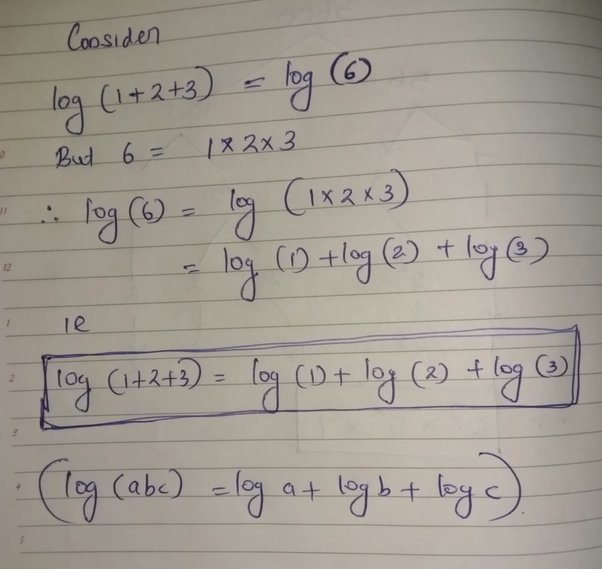 Consider
log (1+2+3) = log (6)
But 6 = 1×2×3
∴ log (6) = log (1×2×3)
= log (1) + log (2) + log (3)
ie
log (1+2+3) = log (1) + log (2) + log (3)
(log (abc) = log a + log b + log c).